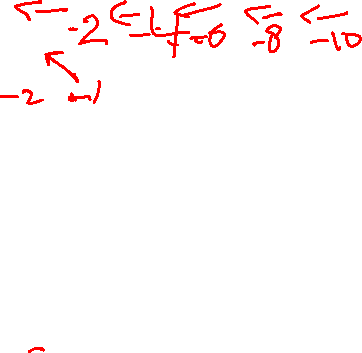 ← -2 ← -4 ← -6 ← -8 ← -10
-2 -1